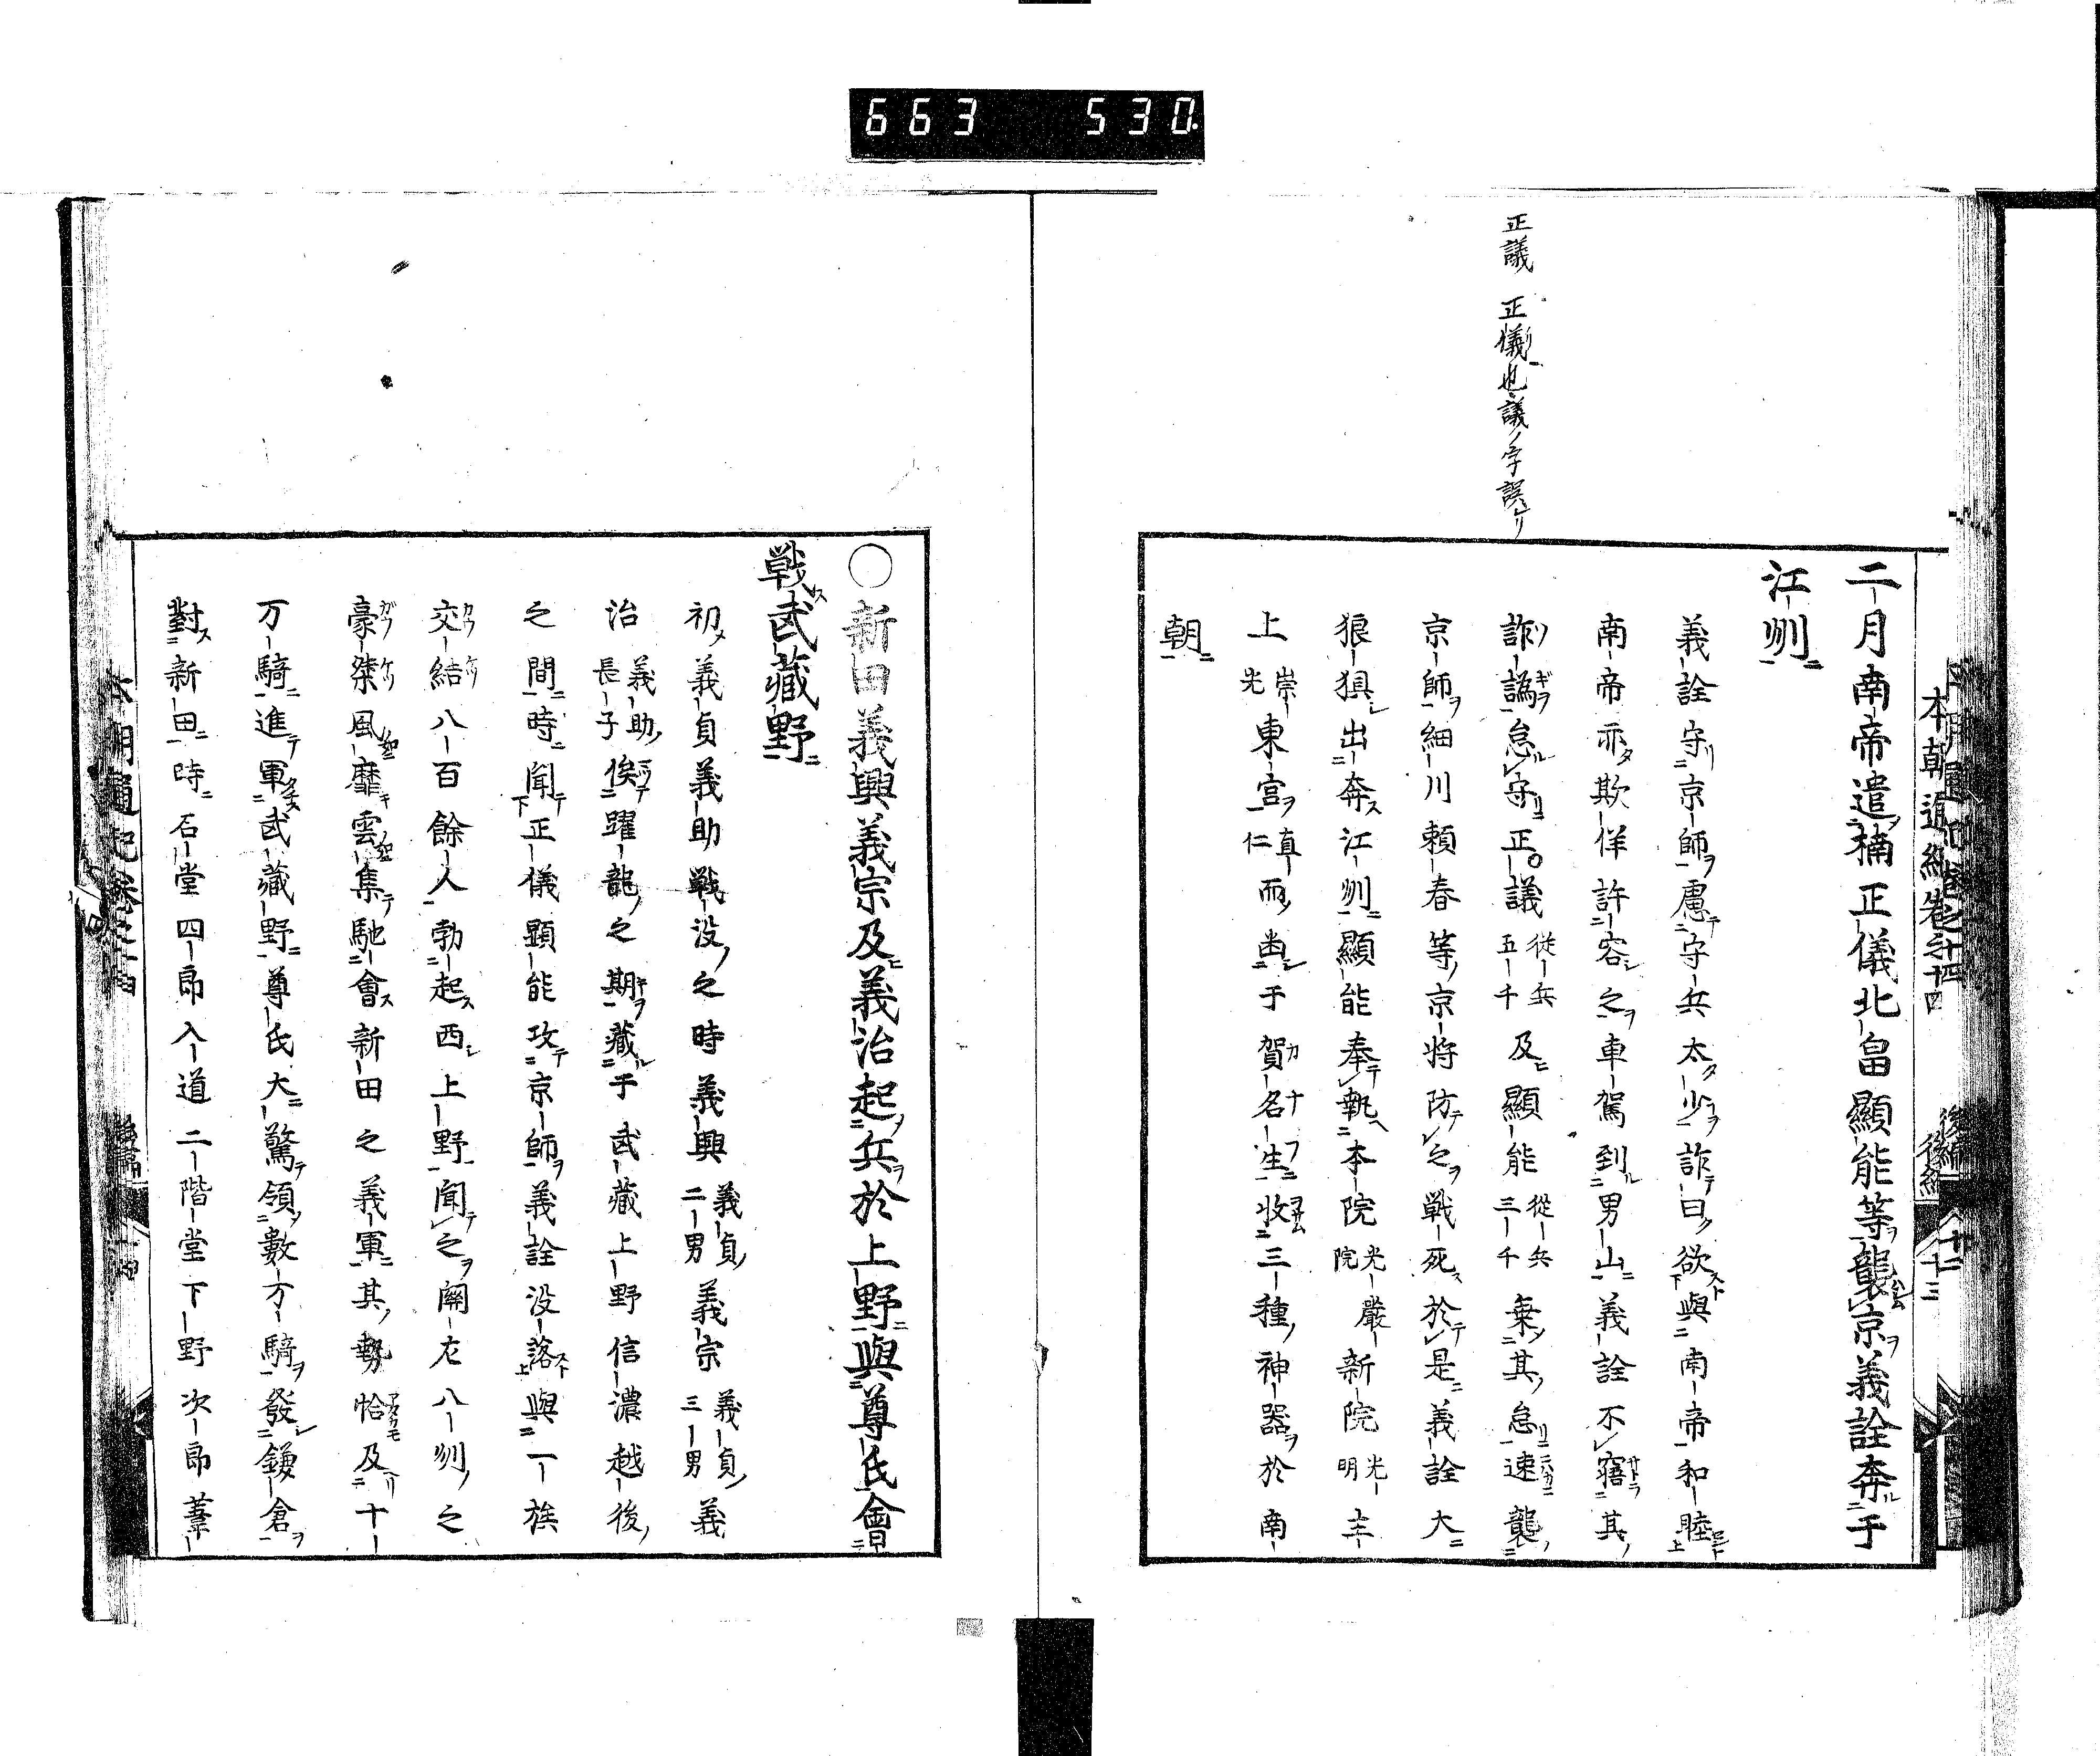 663 530
正議 正儀也議ノ字誤レリ
二月南帝遣楠正儀北畠顯能等襲京義詮奔于
江刕
義詮守京師慮守兵太少詐曰欲與南帝和睦
南帝亦欺佯許容之車駕到男山義詮不寤其
詐譌怠守正議從兵五千及顯能從兵三千乗其怠速襲
京師細川頼春等京将防之戦死於是義詮大
狼狽出奔江刕顯能奉執本院光嚴院新院光明主
上崇光東宮直仁而幽于賀名生收三種神器於南
朝
○新田義興義宗及義治起兵於上野與尊氏會
戦武藏野
初義貞義助戦没之時義興義貞二男義宗義貞三男義
治義助長子俟躍龍之期藏于武藏上野信濃越後
之間時聞正儀顕能攻京師義詮没落與一族
交結八百餘人勃起西上野聞之關左八刕之
豪桀風靡雲集馳會新田之義軍其勢恰及十
万騎進軍武藏野尊氏大驚領數万騎發鎌倉
對新田時石堂四郎入道二階堂下野次郎葦